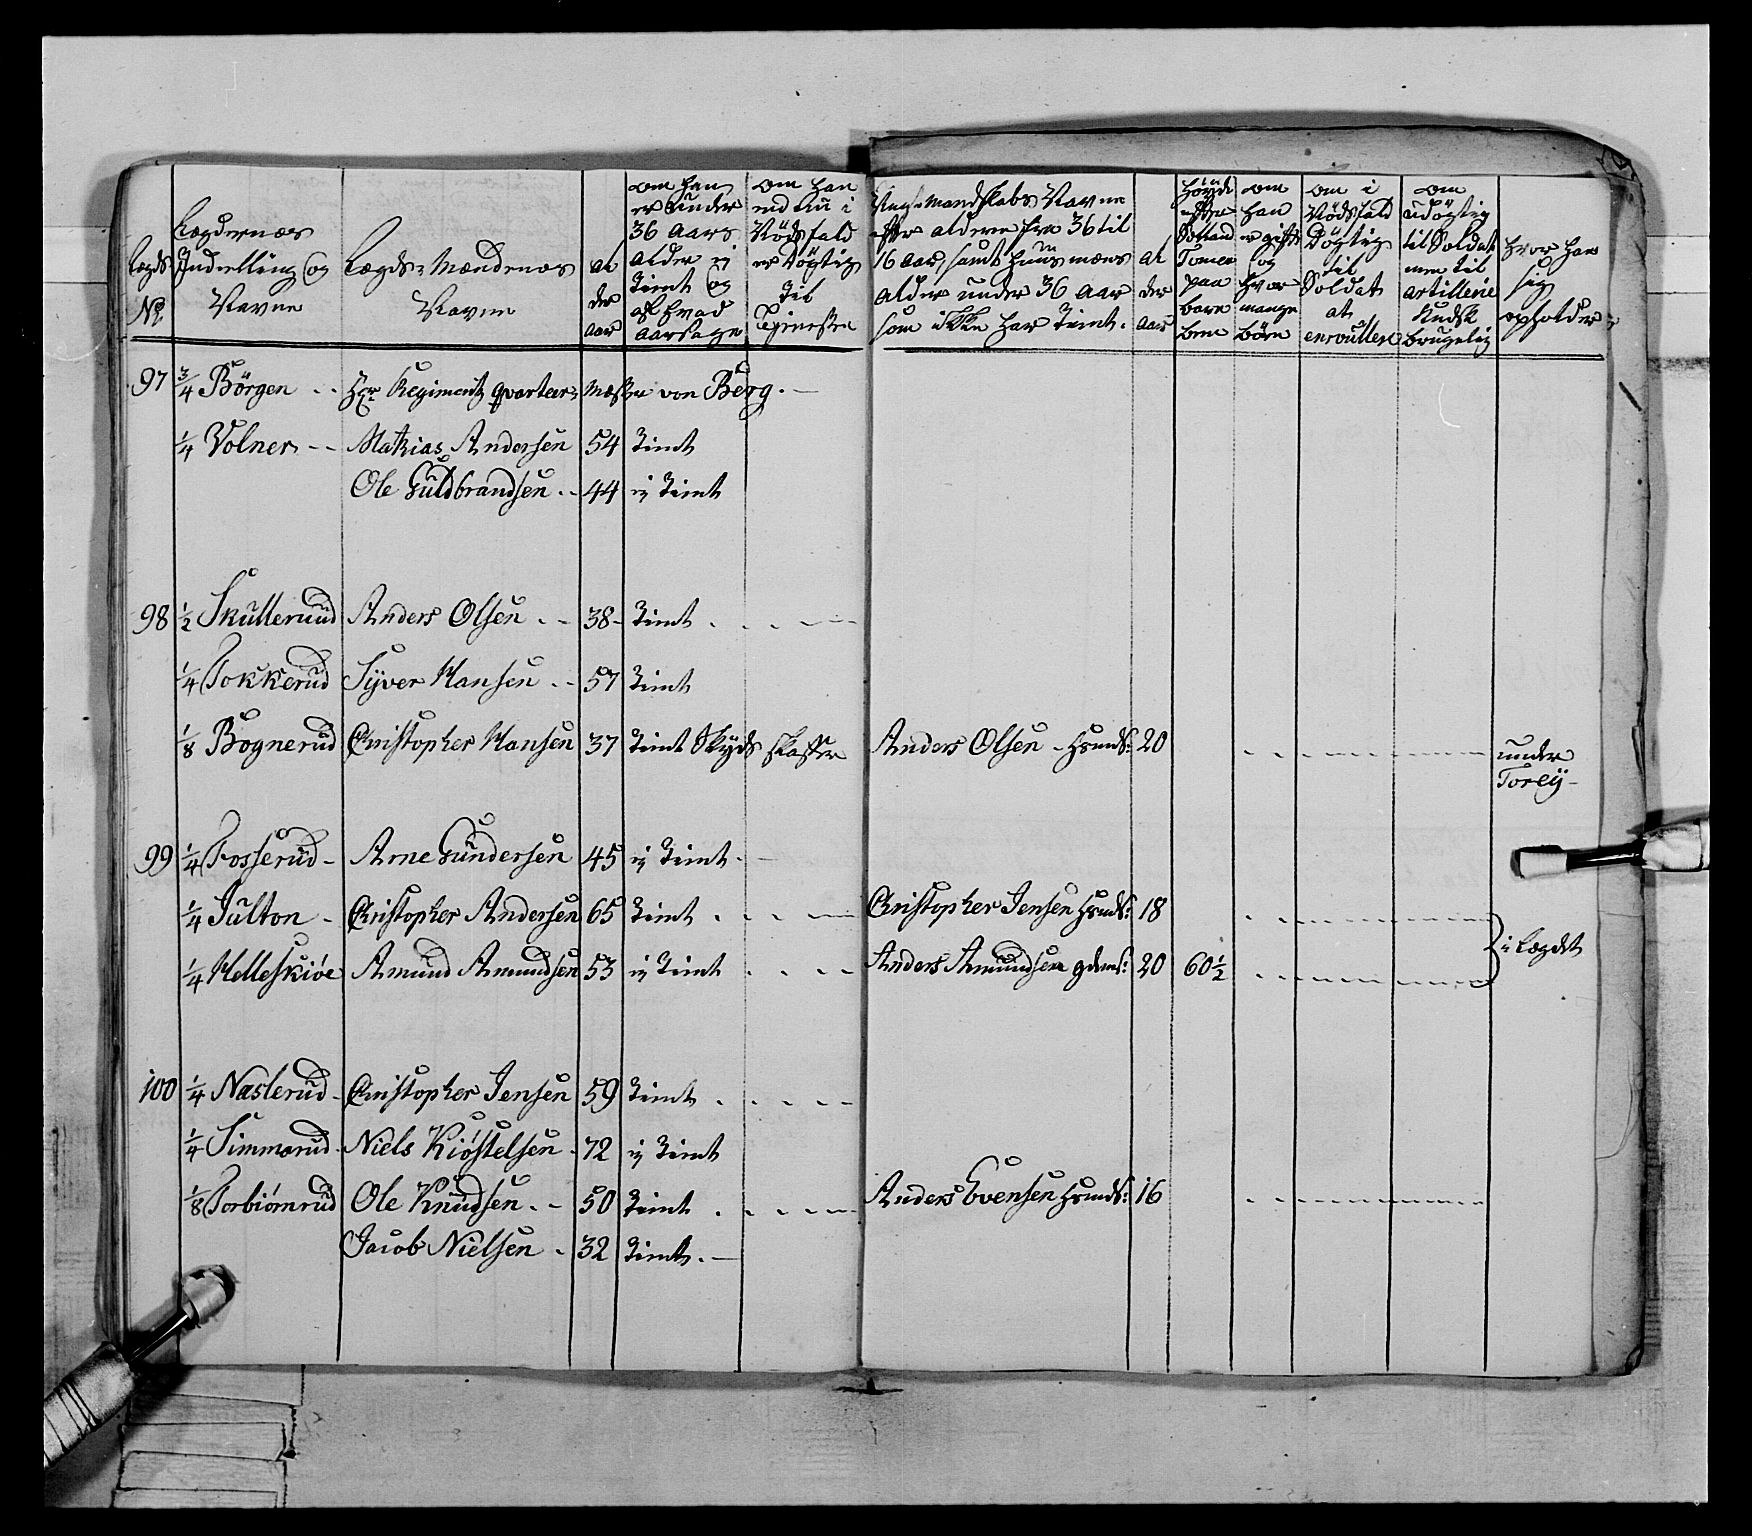 Lægds
No
Lægdernæs
Indeelling og
Navne
Lægds-Mændenes
Navne
al
der
aar
om han
er under
36 Aars
alder ej
tient og
af hvad
aarsage
om han
end nu i
Nødsfald
er døgtig
til
Tienesten
Unge Mandskabs Navne
efter alderen fra 36 til
16 aar, samt huusmæns
alder under 36 aar
som ikke har tient.
al
der
aar
Høyde
efter
Solland
Tomer
paa
bare
bene
om
han
er gift
og
hvor
mange
børn
om i
Nødsfald
Døgtig
til
Soldat
at
enroullere
om
udøgtig
til Soldat
men til
artillerie
Kudsk
brugelig
hvor han
sig
opholder
97 3/4 Börgen - - Hr Regiments qvarteer-Mæster von Berg. -
1/4 Volner - - Mathias Andersen 54 tient
Ole Guldbrandsen - - 44 ej tient
98 1/2 Skullerud Anders Olsen - - 38 - tient
1/4 Tokkerud Syver Hansen - - 57 tient
1/8 Bognerud Christopher Hansen 37 tient Skyds skaffer Anders Olsen - Huusmds: 20 under
Torey -
99 1/4 Fosserud - Arne Gundersen 45 ej tient -
1/4 Julton - Christopher Andersen 65 tient Christopher Jensen Huusmds: 18
1/4 Helleskiøe Amund Amundsen 53 ej tient Anders Amundsen gdms: 20 60 1/2 i Lægdet
100 1/4 Næslerud - Christopher Jensen 59 tient
1/4 Simmarud - Niels Kiöstelsen - 72 ej tient
1/8 Torbiörnrud Ole Knudsen - - 50 tient Anders Evensen Huusmds: 16
Jacob Nielsen - 32 tient. -